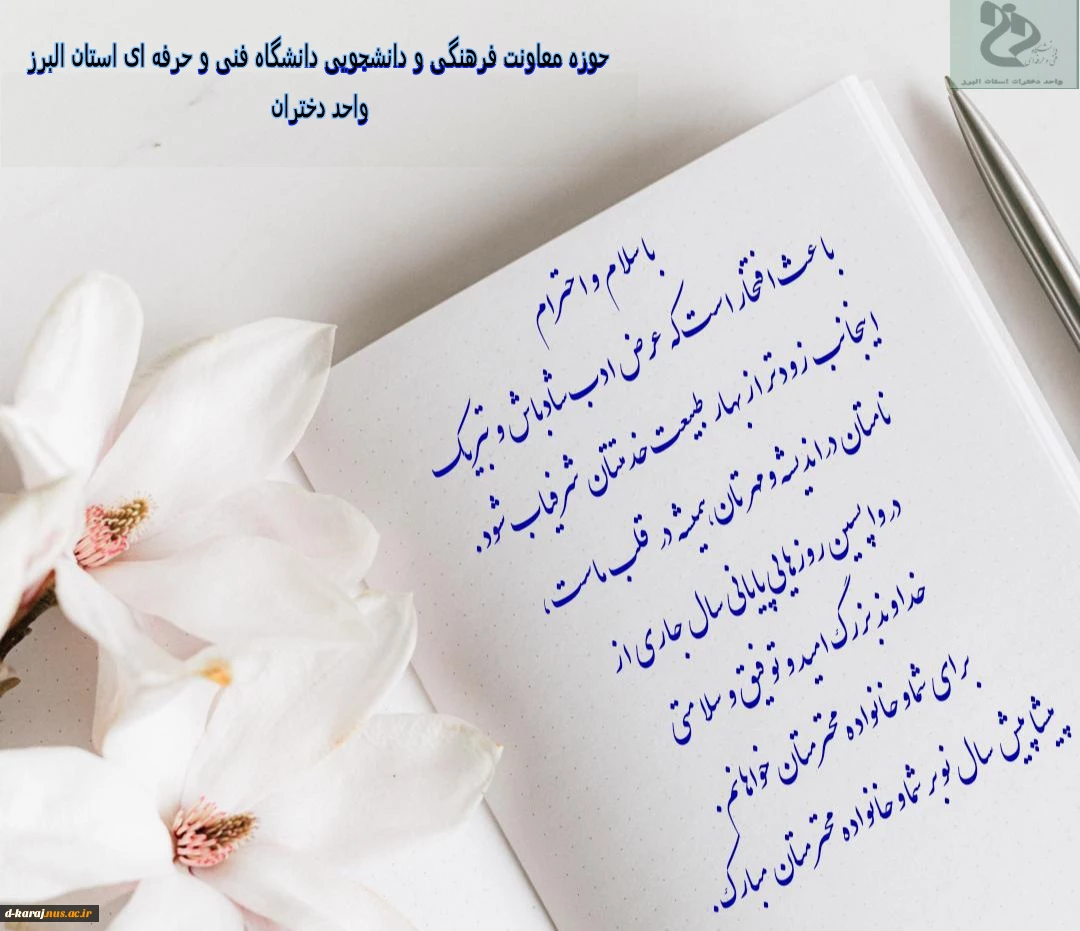 حوزه معاونت فرهنگی و دانشجویی دانشگاه فنی و حرفه ای استان البرز
واحد دختران
دانشگاه
فنی و حرفه‌ای
واحد دختران استان البرز
با سلام و احترام
باعث افتخار است که عرض ادب شادباش و تبریک
اینجانب زودتر از بهار طبیعت خدمتتان شرفیاب شود.
نامتان در اندیشه و مهرتان، همیشه در قلب ماست،
در واپسین روزهایی پایانی سال جاری از
خداوند بزرگ امید و توفیق و سلامتی
برای شما و خانواده محترمتان خواهانم.
پیشاپیش سال نو بر شما و خانواده محترمتان مبارک.
d-karaj.nus.ac.ir